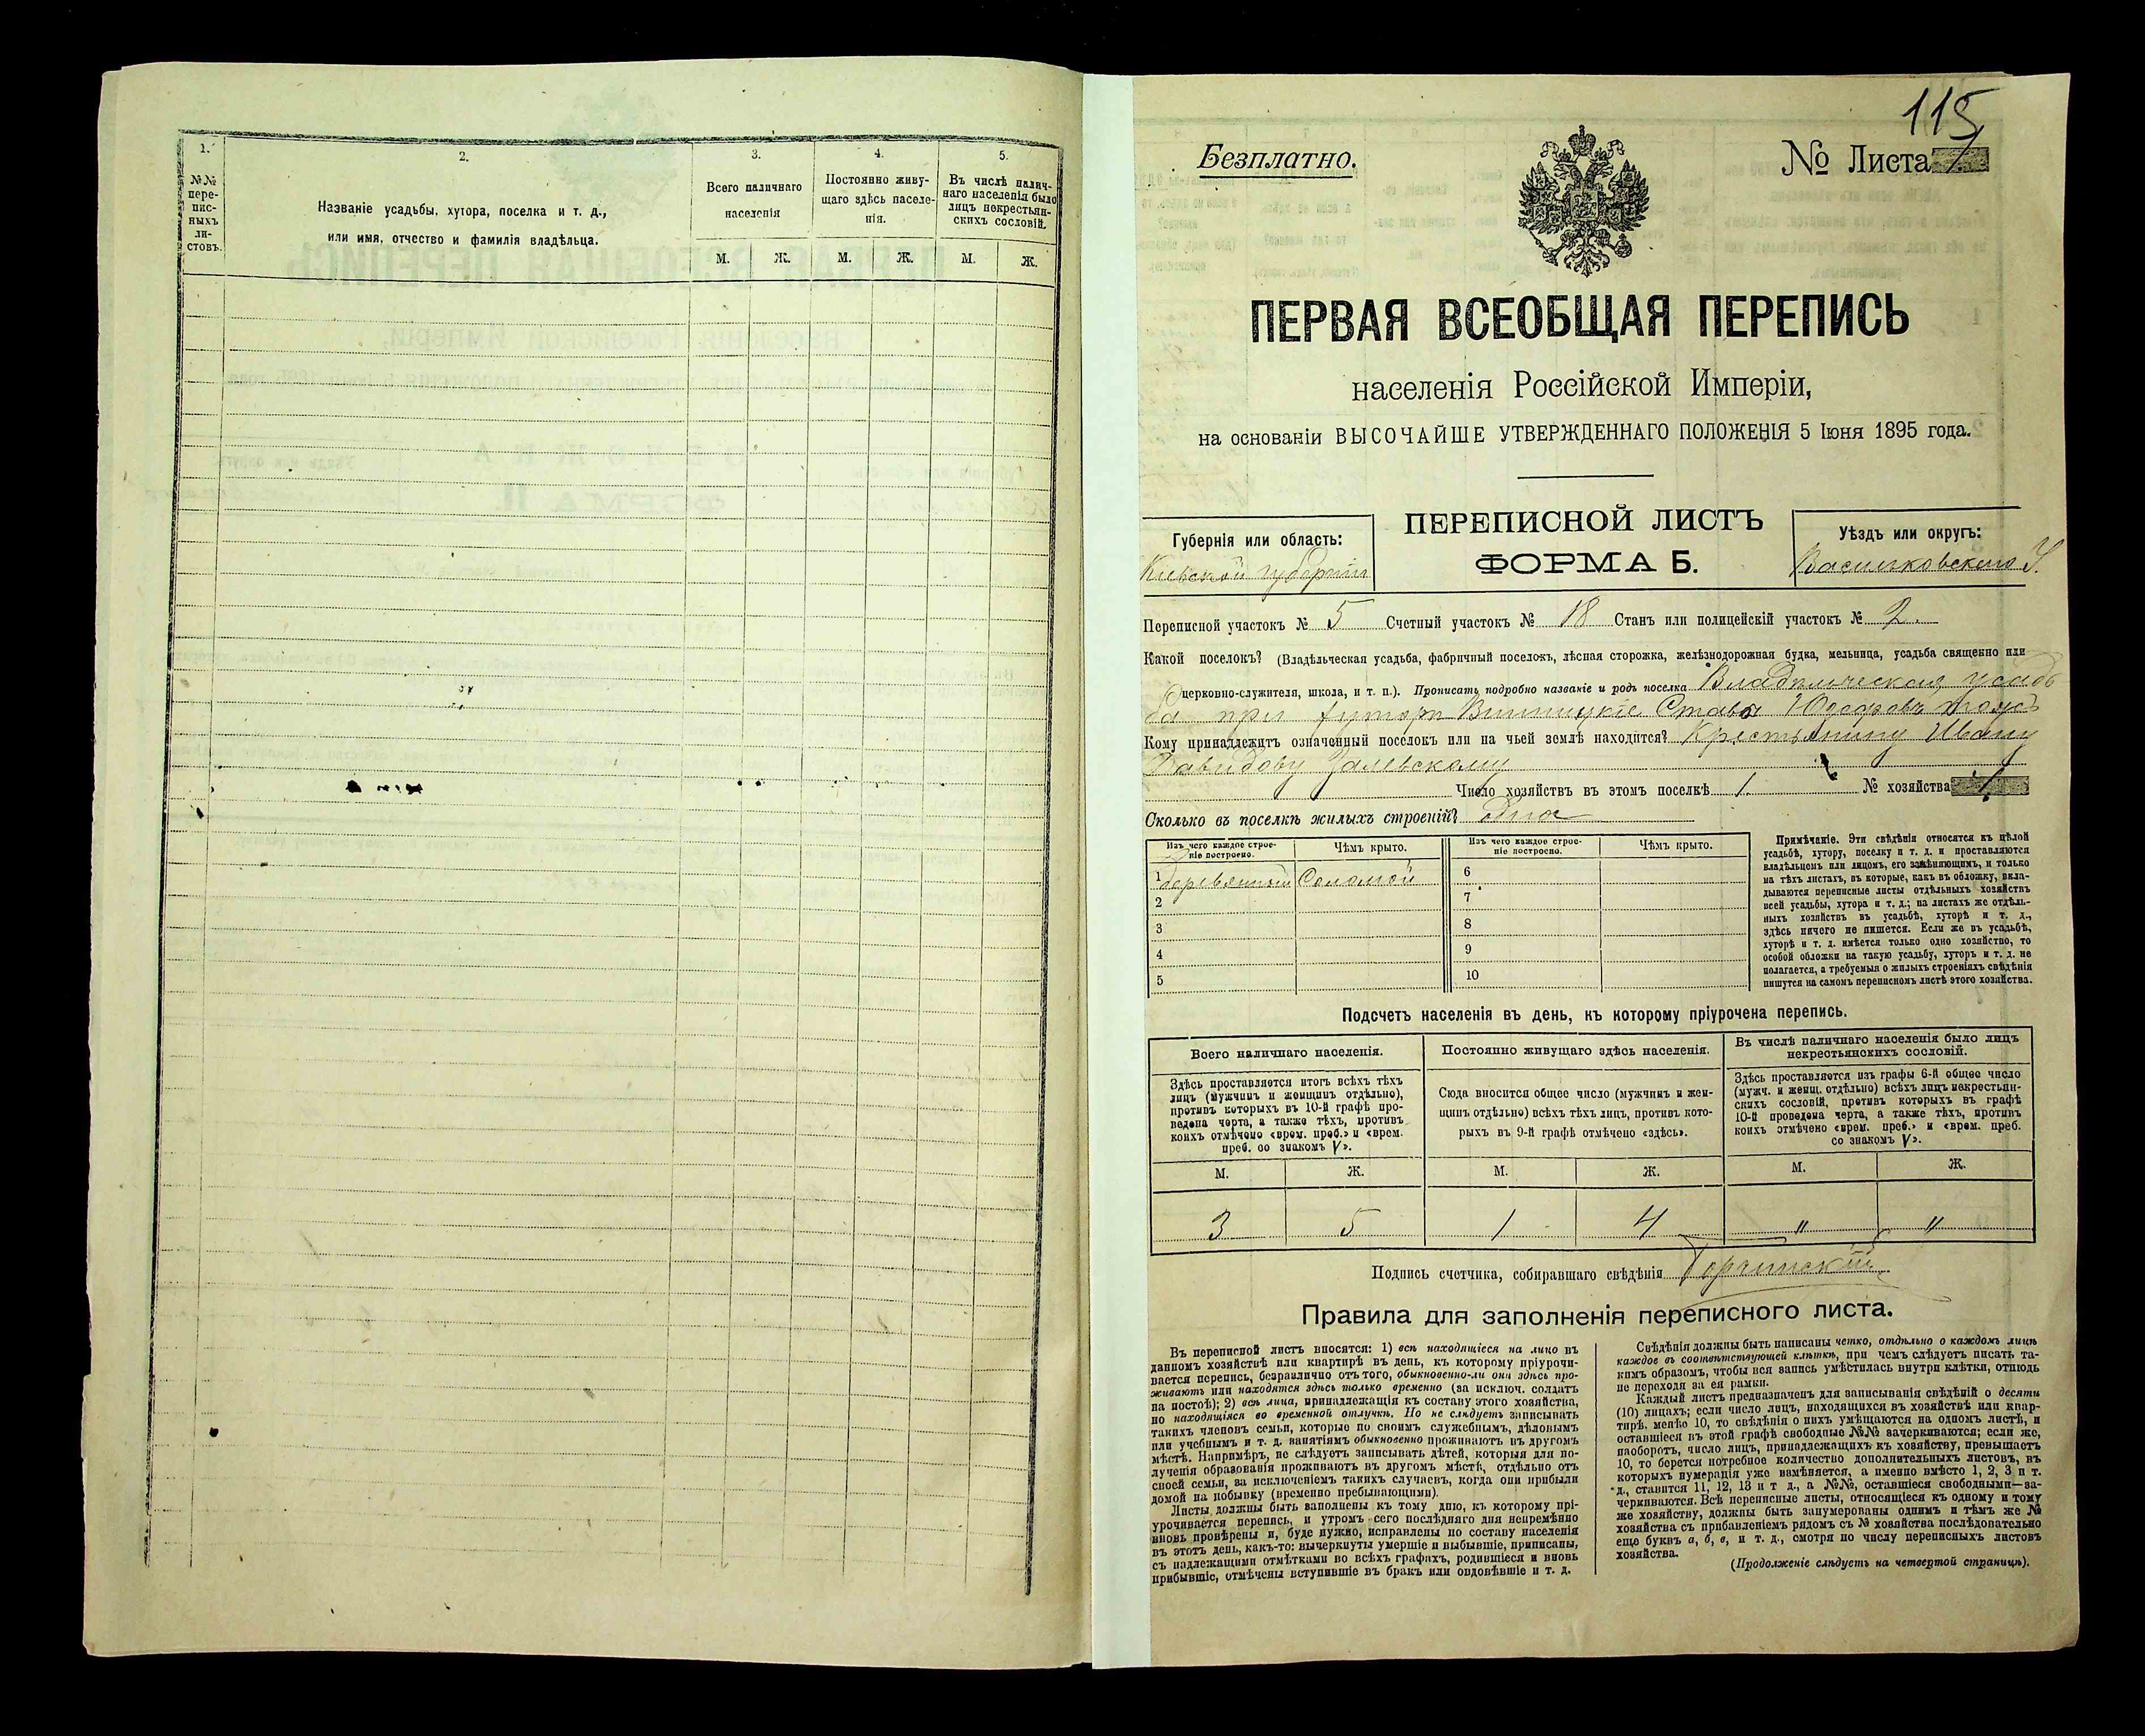 1.
№№
пере-
пис-
ныхъ
ли-
стовъ.
2.
Названіе усадьбы, хутора, поселка и т. д.,
или имя, отчество и фамилія владѣльца.
3.
Всего наличнаго
населенія
М. Ж.
4.
Постоянно живу-
щаго здѣсь населе-
нія.
М. Ж.
5.
Въ числѣ налич-
наго населенія было
лицъ некрестьян-
скихъ сословій.
М. Ж.
115
Безплатно.
№ Листа 1
ПЕРВАЯ ВСЕОБЩАЯ ПЕРЕПИСЬ
населенія Россійской Имперіи,
на основаніи ВЫСОЧАЙШЕ УТВЕРЖДЕННАГО ПОЛОЖЕНІЯ 5 Іюня 1895 года.
Губернія или область:
Кіевской губерніи
ПЕРЕПИСНОЙ ЛИСТЪ
ФОРМА Б.
Уѣздъ или округъ:
Васильковскаго У.
Переписной участокъ № 5 Счетный участокъ № 18 Станъ или полицейскій участокъ № 2.
Какой поселокъ? (Владѣльческая усадьба, фабричный поселокъ, лѣсная сторожка, желѣзнодорожная будка, мельница, усадьба священно или
церковно-служителя, школа, и т. п.). Прописать подробно названіе и родъ поселка Владѣльческая усадь
ба при хуторѣ Винницкіе Ставы
Кому принадлежитъ означенный поселокъ или на чьей землѣ находится? Крестьянину Ивану
Давидову Залевскому
Число хозяйствъ въ этомъ поселкѣ 1 № хозяйства 1
Сколько въ поселкѣ жилыхъ строеній? Одно
Изъ чего каждое строе-
ніе построено.
Чѣмъ крыто.
Изъ чего каждое строе-
ніе построено.
Чѣмъ крыто.
1 деревянный Соломой 6
2 7
3 8
4 9
5 10
Примѣчаніе. Эти свѣдѣнія относятся къ цѣлой
усадьбѣ, хутору, поселку и т. д. и проставляются
владѣльцемъ или лицомъ, его замѣняющимъ, и только
на тѣхъ листахъ, въ которые, какъ въ обложку, вкла-
дываются переписные листы отдѣльныхъ хозяйствъ
всей усадьбы, хутора и т. д.; на листахъ же отдѣль-
ныхъ хозяйствъ въ усадьбѣ, хуторѣ и т. д.,
здѣсь ничего не пишется. Если же въ усадьбѣ,
хуторѣ и т. д. имѣется только одно хозяйство, то
особой обложки на такую усадьбу, хуторъ и т. д. не
полагается, а требуемыя о жилыхъ строеніяхъ свѣдѣнія
пишутся на самомъ переписномъ листѣ этого хозяйства.
Подсчетъ населенія въ день, къ которому пріурочена перепись.
Всего наличнаго населенія.
Здѣсь проставляется итогъ всѣхъ тѣхъ
лицъ (мужчинъ и женщинъ отдѣльно),
противъ которыхъ въ 10-й графѣ про-
ведена черта, а также тѣхъ, противъ
коихъ отмѣчено «врем. преб.» и «врем.
преб. со знакомъ V».
М. Ж.
3 5
Постоянно живущаго здѣсь населенія.
Сюда вносится общее число (мужчинъ и жен-
щинъ отдѣльно) всѣхъ тѣхъ лицъ, противъ кото-
рыхъ въ 9-й графѣ отмѣчено «здѣсь».
М. Ж.
1 4
Въ числѣ наличнаго населенія было лицъ
некрестьянскихъ сословій.
Здѣсь проставляется изъ графы 6-й общее число
(мужч. и женщ. отдѣльно) всѣхъ лицъ некрестьян-
скихъ сословій, противъ которыхъ въ графѣ
10-й проведена черта, а также тѣхъ, противъ
коихъ отмѣчено «врем. преб.» и «врем. преб.
со знакомъ V».
М. Ж.
" "
Подпись счетчика, собиравшаго свѣдѣнія
Правила для заполненія переписного листа.
Въ переписной листъ вносятся: 1) всѣ находящіеся на лицо въ
данномъ хозяйствѣ или квартирѣ въ день, къ которому пріурочи-
вается перепись, безразлично отъ того, обыкновенно-ли они здѣсь про-
живаютъ или находятся здѣсь только временно (за исключ. солдатъ
на постоѣ); 2) всѣ лица, принадлежащія къ составу этого хозяйства,
но находящіяся во временной отлучкѣ. Но не слѣдуетъ записывать
такихъ членовъ семьи, которые по своимъ служебнымъ, дѣловымъ
или учебнымъ и т. д. занятіямъ обыкновенно проживаютъ въ другомъ
мѣстѣ. Напримѣръ, не слѣдуетъ записывать дѣтей, которыя для по-
лученія образованія проживаютъ въ другомъ мѣстѣ, отдѣльно отъ
своей семьи, за исключеніемъ такихъ случаевъ, когда они прибыли
домой на побывку (временно пребывающими).
Листы должны быть заполнены къ тому дню, къ которому прі-
урочивается перепись, и утромъ сего послѣдняго дня непремѣнно
вновь провѣрены и, буде нужно, исправлены по составу населенія
въ этотъ день, какъ-то: вычеркнуты умершіе и выбывшіе, приписаны,
съ надлежащими отмѣтками во всѣхъ графахъ, родившіеся и вновь
прибывшіе, отмѣчены вступившіе въ бракъ или овдовѣвшіе и т. д.
Свѣдѣнія должны быть написаны четко, отдѣльно о каждомъ лицѣ
каждое въ соотвѣтствующей клѣткѣ, при чемъ слѣдуетъ писать та-
кимъ образомъ, чтобы вся запись умѣстилась внутри клѣтки, отнюдь
не переходя за ея рамки.
Каждый листъ предназначенъ для записыванія свѣдѣній о десяти
(10) лицахъ; если число лицъ, находящихся въ хозяйствѣ или квар-
тирѣ, менѣе 10, то свѣдѣнія о нихъ умѣщаются на одномъ листѣ, и
оставшіеся въ этой графѣ свободные №№ зачеркиваются; если же,
наоборотъ, число лицъ, принадлежащихъ къ хозяйству, превышаетъ
10, то берется потребное количество дополнительныхъ листовъ, въ
которыхъ нумерація уже измѣняется, а именно вмѣсто 1, 2, 3 и т.
д., ставится 11, 12, 13 и т д., а №№, оставшіеся свободными—за-
черкиваются. Всѣ переписные листы, относящіеся къ одному и тому
же хозяйству, должны быть занумерованы однимъ и тѣмъ же №
хозяйства съ прибавленіемъ рядомъ съ № хозяйства послѣдовательно
еще буквъ а, б, в, и т. д., смотря по числу переписныхъ листовъ
хозяйства.
(Продолженіе слѣдуетъ на четвертой страницѣ).